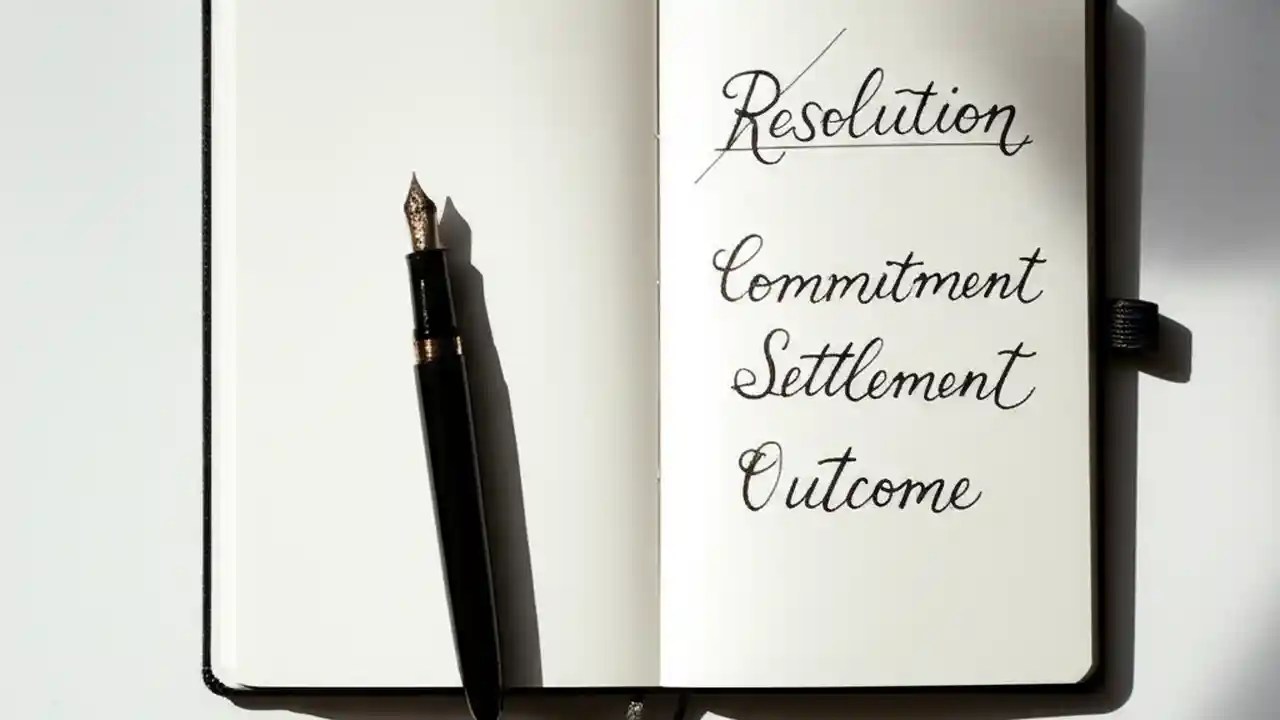 Resolution
Commitment
Settlement
Outcome